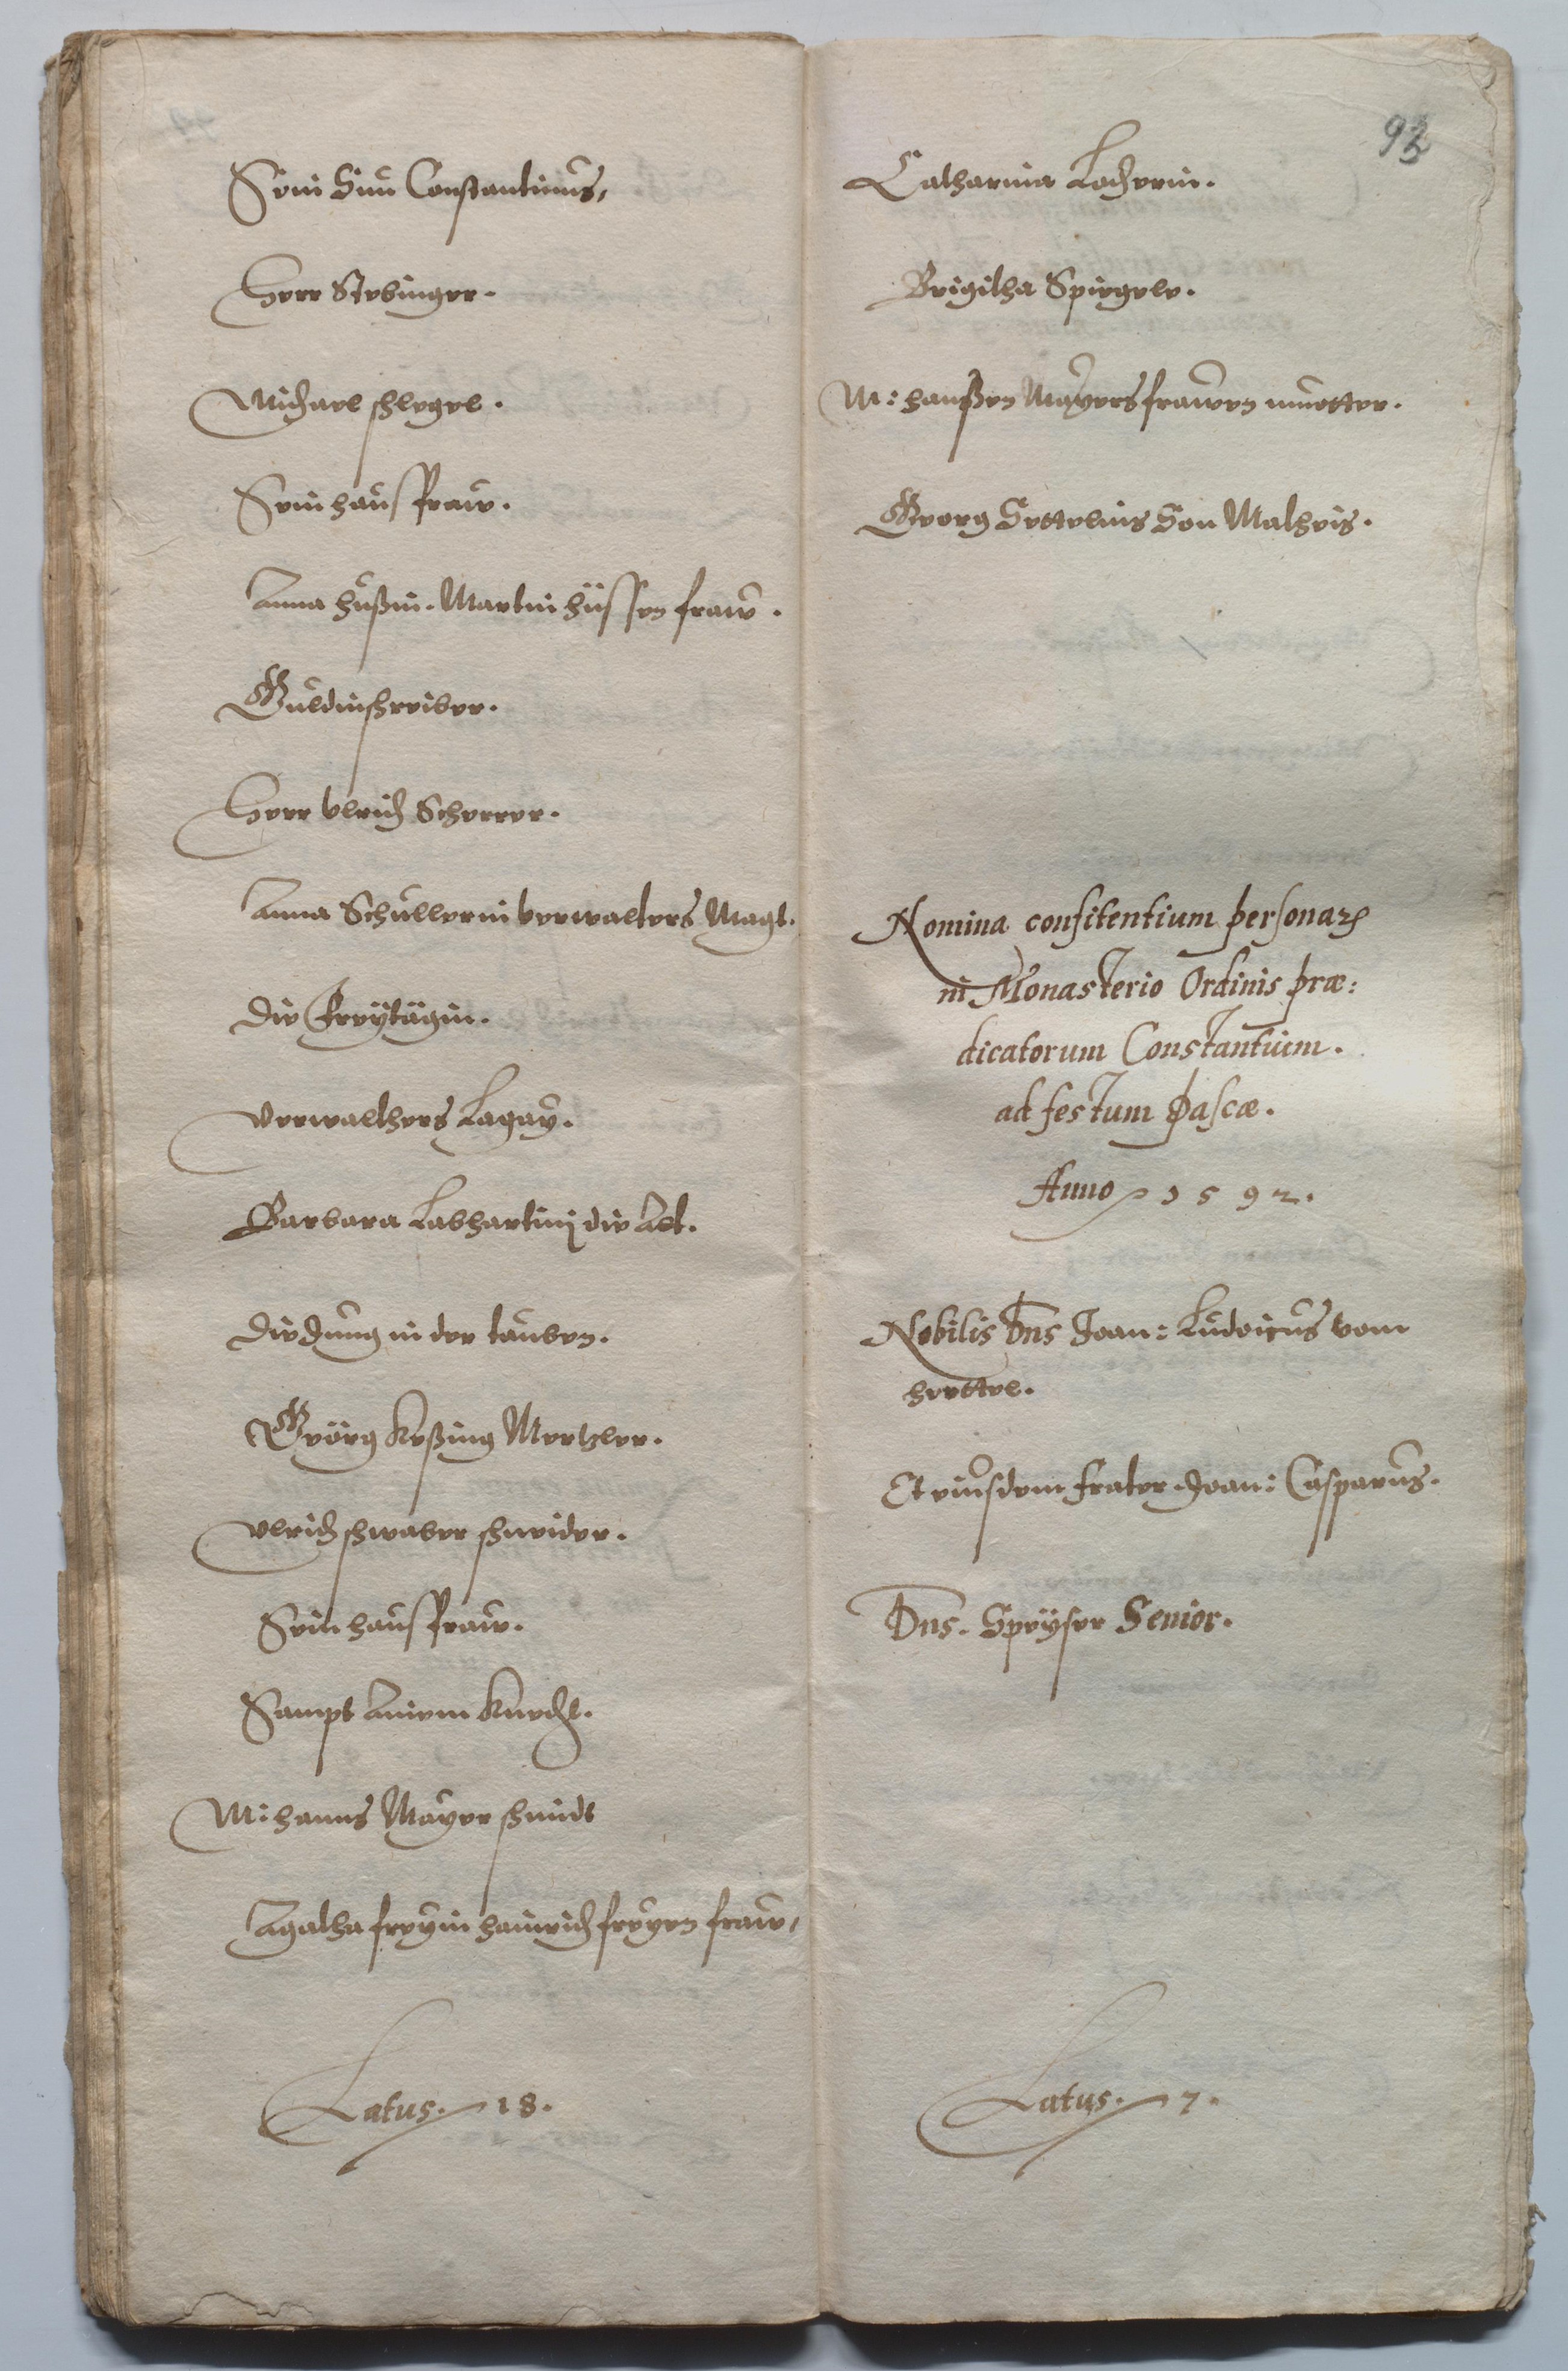 Sein Sun Constantinus,
Herr Stebinger.
Michael schlegel.
Sein hausfraw.
Anna hüßin. Martin hüssen fraw.
Guldinschreiber.
Herr Vlrich Scherrer.
Anna Schullerin verwalters Magt.
Die Freytägin.
Verwalthers Lagay.
Barbara Labhartinj die Alt.
Die Jung in der tauben.
Geörg Keßing Metzler.
Vlrich schwaber schneider.
Sein hausfraw.
Sampt Ainem Knecht.
M: hanns Mayer schmidt
Agatha freyin hainrich freyen fraw,
Latus. 18.
93
Catharina Locherin.
Brigitha Spiegele.
M: hanßen Mayers frawen muotter.
Georg Settelins Son Matheis.
Nomina confitentium personarꝝ
in Monasterio Ordinis præ:
dicatorum Constantiem.
ad festum Pascæ.
Anno 1592.
Nobilis Dns Joan: Ludvicus vom
hrettel.
Et eiusdem frater. Joan: Casparus.
Dns. Speyser Senior.
Latus. 7.